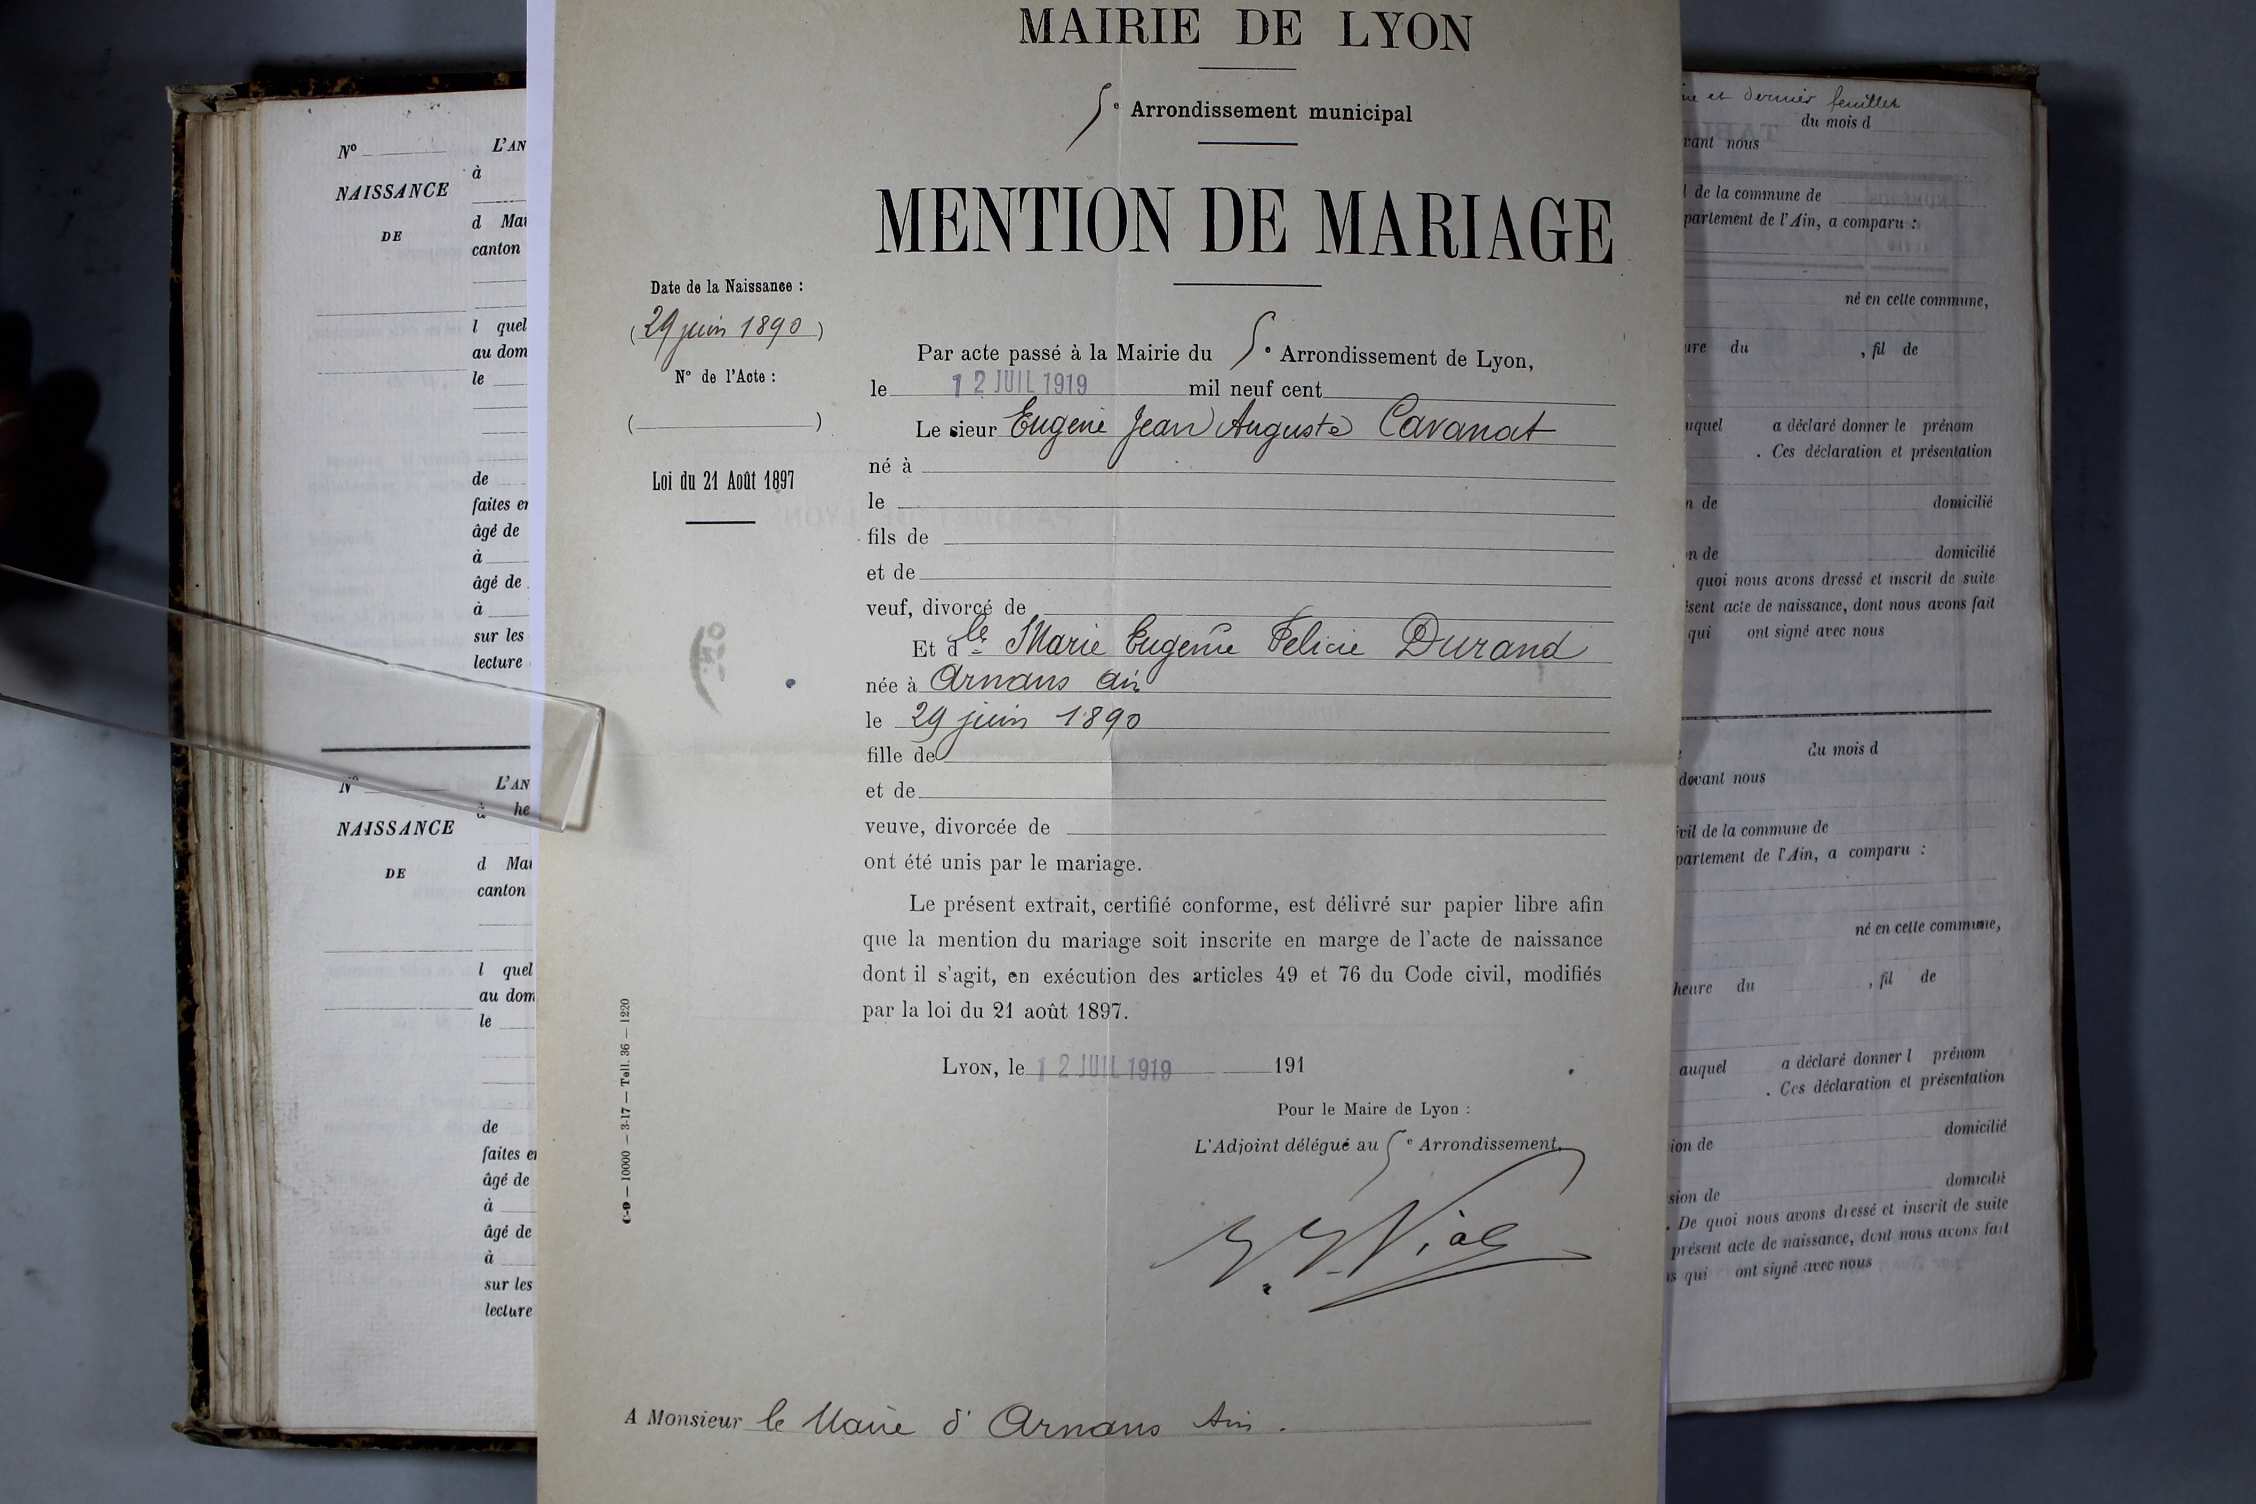 MAIRIE DE LYON
5e Arrondissement municipal
MENTION DE MARIAGE
Date de la Naissance :
(29 juin 1890)
N° de l'Acte :
( )
Loi du 21 Août 1897
Par acte passé à la Mairie du 5e Arrondissement de Lyon,
le 12 JUIL 1919 mil neuf cent
Le sieur Eugène Jean Auguste Cavanat
né à
le
fils de
et de
veuf, divorcé de
Et dlle Marie Eugénie Felicie Durand
née à Arnans Ain
le 29 juin 1890
fille de
et de
veuve, divorcée de
ont été unis par le mariage.
Le présent extrait, certifié conforme, est délivré sur papier libre afin
que la mention du mariage soit inscrite en marge de l'acte de naissance
dont il s'agit, en exécution des articles 49 et 76 du Code civil, modifiés
par la loi du 21 août 1897.
LYON, le 12 JUIL 1919 191
Pour le Maire de Lyon :
L'Adjoint délégué au 5e Arrondissement,
A MONSIEUR le Maire d' Arnans Ain.
C-D — 10000 — 3-17 — Tell. 36 — 1220
N° L'AN
NAISSANCE à
DE d Mai
canton
l quel
au dom
le
de
faites en
âgé de
à
âgé de
à
sur les
lecture
N° L'AN
à he
NAISSANCE
DE d Mai
canton
l quel
au dom
le
de
faites en
âgé de
à
âgé de
à
sur les
lecture
et dernier feuillet
du mois d
vant nous
l de la commune de
partement de l'Ain, a comparu :
né en cette commune,
ure du , fil de
uquel a déclaré donner le prénom
. Ces déclaration et présentation
n de domicilié
on de domicilié
quoi nous avons dressé et inscrit de suite
ésent acte de naissance, dont nous avons fait
qui ont signé avec nous
du mois d
devant nous
ivil de la commune de
partement de l'Ain, a comparu :
né en cette commune,
heure du , fil de
auquel a déclaré donner l prénom
. Ces déclaration et présentation
ion de domicilié
sion de domicilié
. De quoi nous avons dressé et inscrit de suite
présent acte de naissance, dont nous avons fait
s qui ont signé avec nous